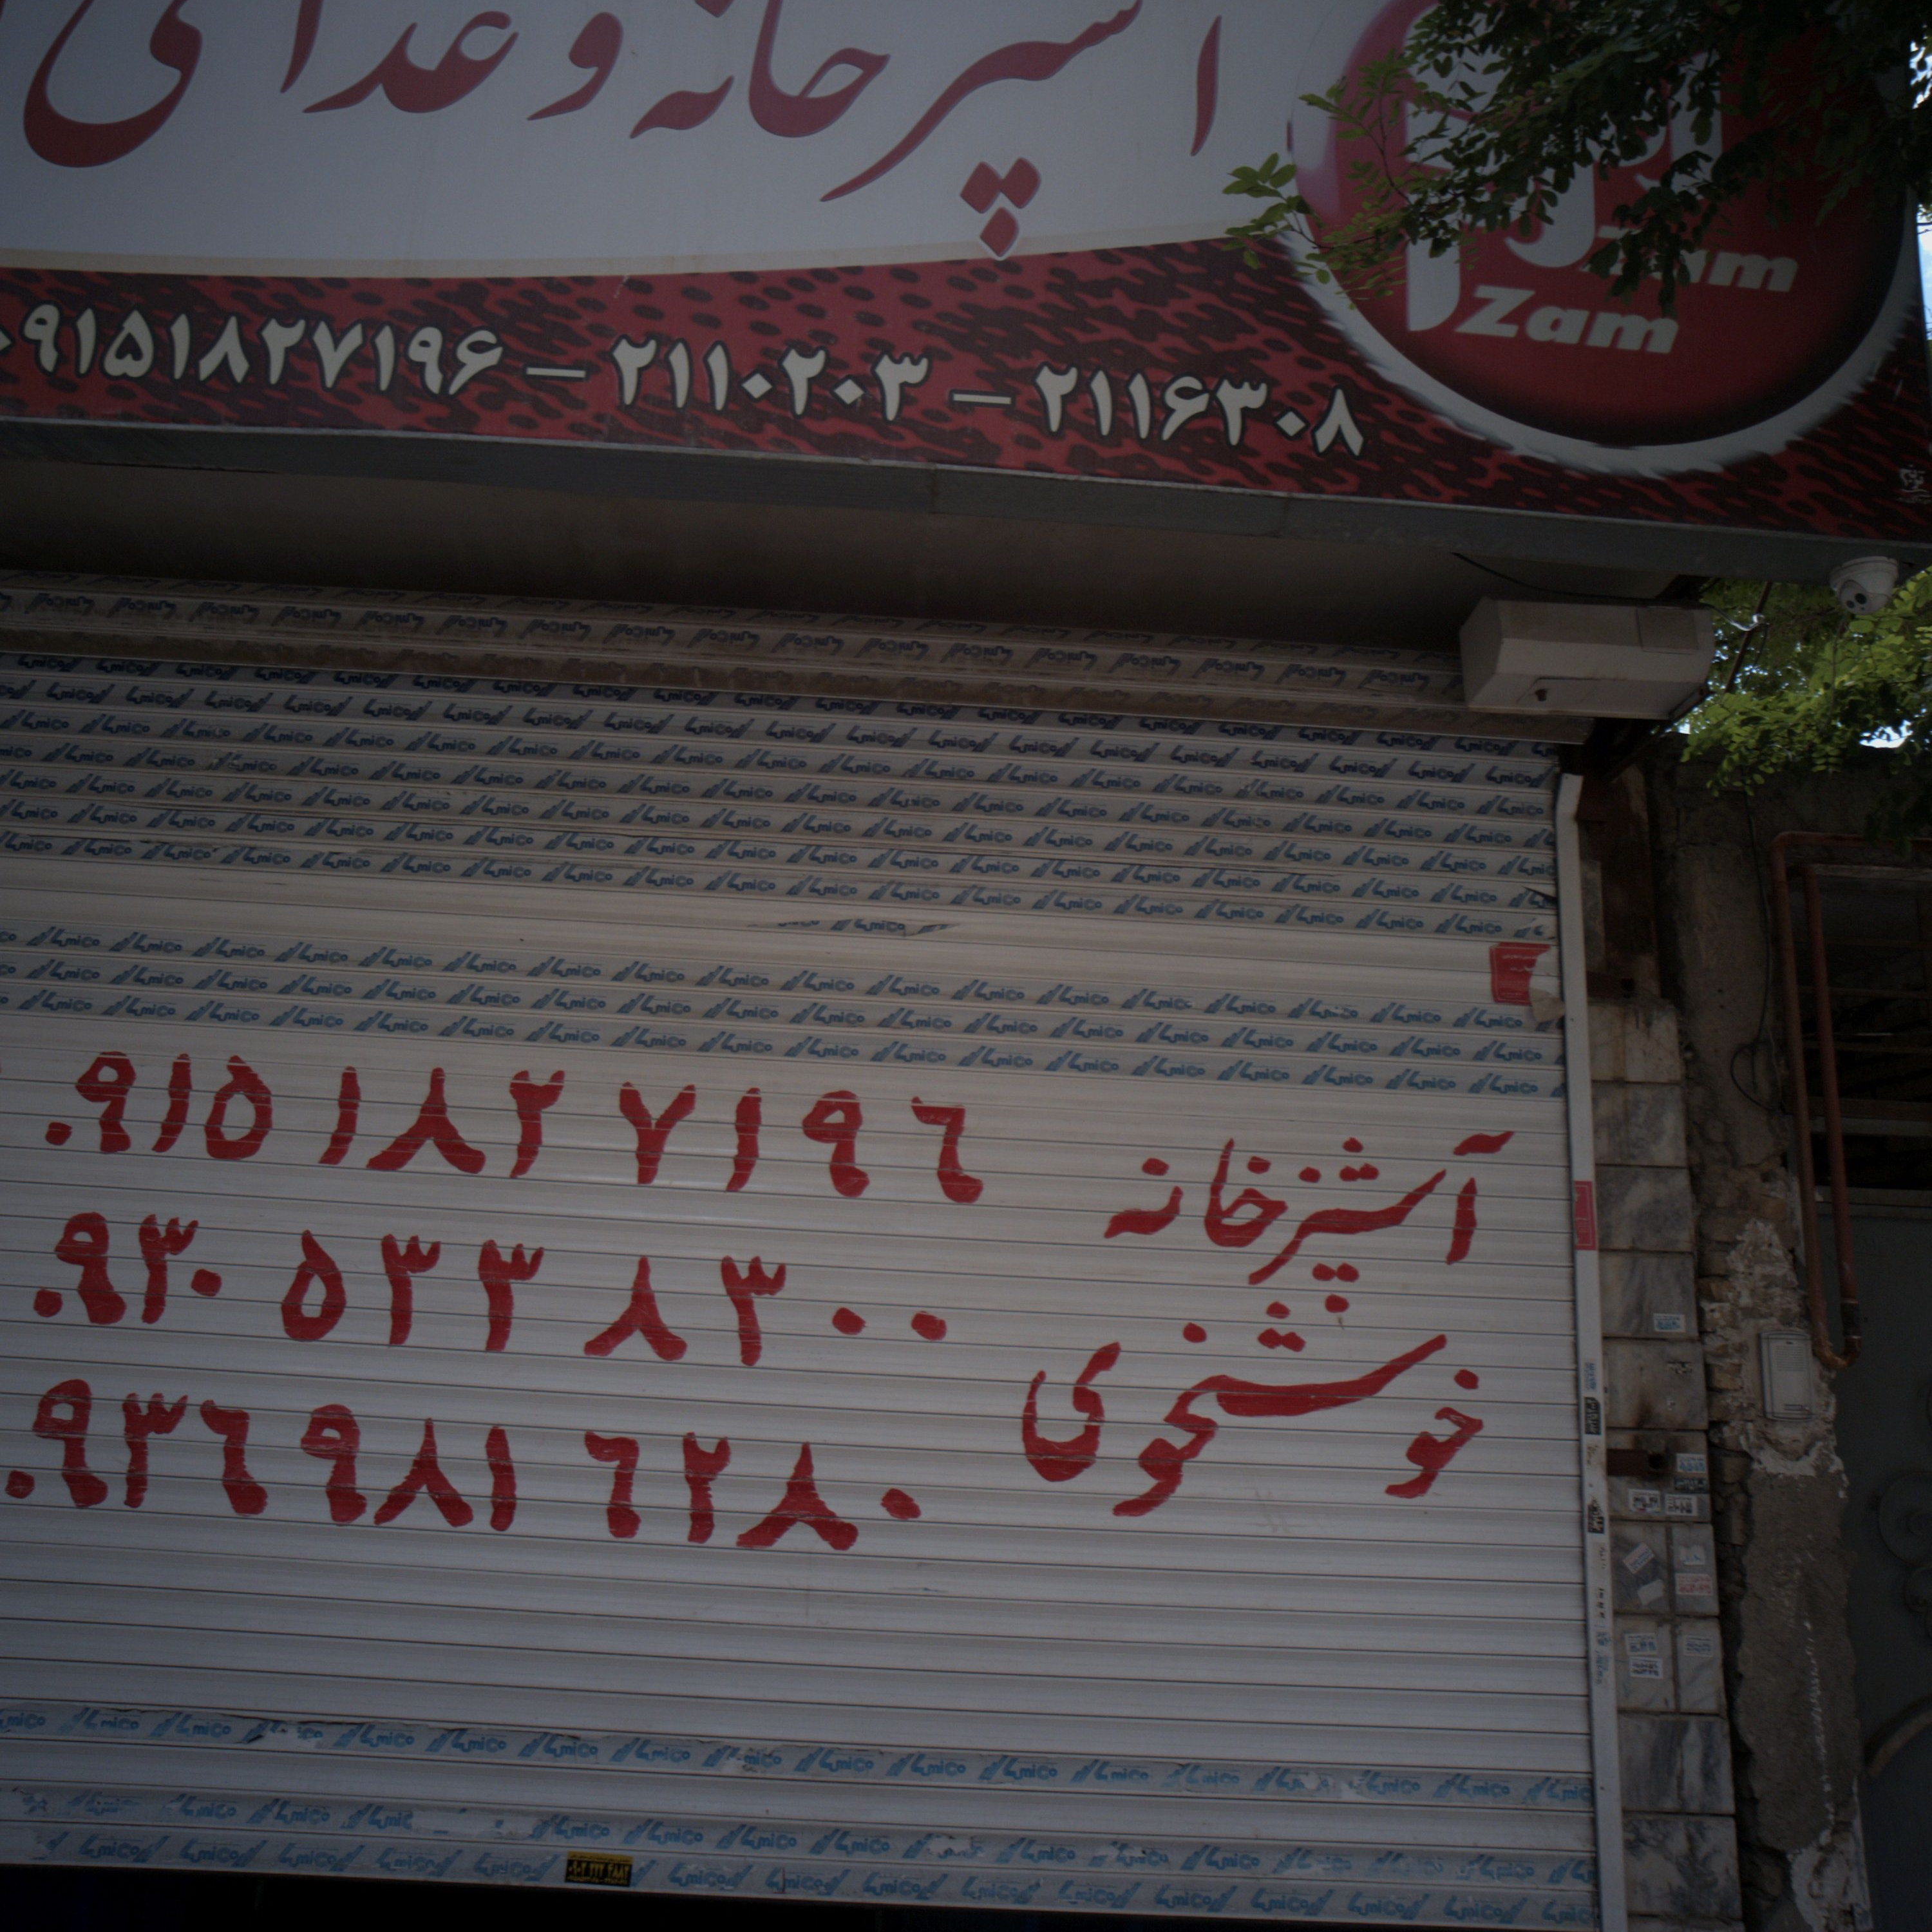 آشپزخانه و غذای
زم زم
Zam Zam
۰۹۱۵۱۸۲۷۱۹۶ – ۲۱۱۰۲۰۳ – ۲۱۱۶۳۰۸
آشپزخانه
خوشخوی
۰۹۱۵۱۸۲۷۱۹۶
۰۹۳۰۵۳۳۸۳۰۰
۰۹۳۶۹۸۱۶۲۸۰